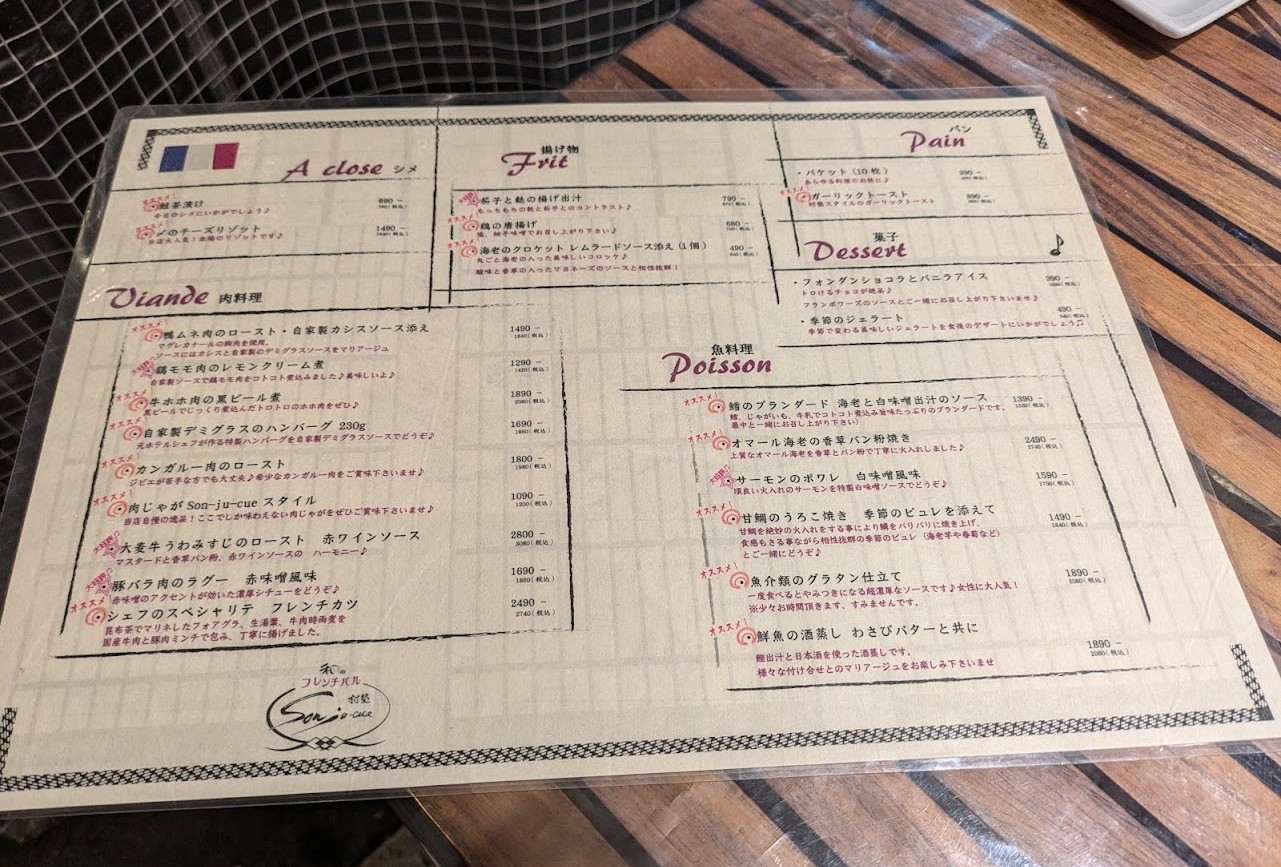 A close シメ
オススメ!
鮭茶漬け 690-
今日のシメにいかがでしょう♪
オススメ!
〆のチーズリゾット 1490-
当店大人気!本場のリゾットです♪
揚げ物
Frit
茄子と麩の揚げ出汁 790-
もっちもちの麩と茄子とのコントラスト♪
オススメ!
鶏の唐揚げ 680-
塩、柚子味噌でお召し上がり下さい♪
オススメ!
海老のクロケット レムラードソース添え(1個) 490-
丸ごと海老の入った美味しいコロッケ♪
酸味と香草の入ったマヨネーズのソースと相性抜群!
パン
Pain
・バケット(10枚) 390-
あらゆる料理のお供に♪
オススメ!
ガーリックトースト 890-
村塾スタイルのガーリックトースト
菓子
Dessert
・フォンダンショコラとバニラアイス 990-
トロけるチョコが絶品♪
フランボワーズのソースとご一緒にお召し上がり下さいませ♪
・季節のジェラート 490-
季節で変わる美味しいジェラートを食後のデザートにいかがでしょう♫
Viande 肉料理
オススメ!
鴨ムネ肉のロースト・自家製カシスソース添え 1490-
1640(税込)
マグレカナールの胸肉を使用。
ソースにはカシスと自家製のデミグラスソースをマリアージュ
鶏モモ肉のレモンクリーム煮 1290-
1420(税込)
自家製ソースで鶏モモ肉をコトコト煮込みました♪美味しいよ♪
オススメ!
牛ホホ肉の黒ビール煮 1890-
2080(税込)
黒ビールでじっくり煮込んだトロトロのホホ肉をぜひ♪
オススメ!
自家製デミグラスのハンバーグ 230g 1690-
1860(税込)
元ホテルシェフが作る特製ハンバーグを自家製デミグラスソースでどうぞ♪
オススメ!
カンガルー肉のロースト 1800-
1980(税込)
ジビエが苦手な方でも大丈夫♪希少なカンガルー肉をご賞味下さいませ♪
オススメ!
肉じゃが Son-ju-cue スタイル 1090-
1200(税込)
当店自慢の逸品!ここでしか味わえない肉じゃがをぜひご賞味下さいませ♪
大麦牛うわみすじのロースト 赤ワインソース 2800-
3080(税込)
マスタードと香草パン粉、赤ワインソースの ハーモニー♪
豚バラ肉のラグー 赤味噌風味 1690-
1860(税込)
赤味噌のアクセントが効いた濃厚シチューをどうぞ♪
オススメ!
シェフのスペシャリテ フレンチカツ 2490-
2740(税込)
昆布茶でマリネしたフォアグラ、生湯葉、牛肉時雨煮を
国産牛肉と豚肉ミンチで包み、丁寧に揚げました。
魚料理
Poisson
オススメ!
鱈のブランダード 海老と白味噌出汁のソース 1390-
鱈、じゃがいも、牛乳でコトコト煮込み旨味たっぷりのブランダードです。
最中と一緒にお召し上がり下さい)
オススメ!
オマール海老の香草パン粉焼き 2490-
2740(税込)
上質なオマール海老を香草とパン粉で丁寧に火入れしました♪
サーモンのポワレ 白味噌風味 1590-
1750(税込)
頃良い火入れのサーモンを特製白味噌ソースでどうぞ♪
オススメ!
甘鯛のうろこ焼き 季節のピュレを添えて 1490-
1640(税込)
甘鯛を絶妙の火入れをする事により鱗をパリパリに焼き上げ、
食感もさる事ながら相性抜群の季節のピュレ(海老芋や春菊など)
とご一緒にどうぞ♪
オススメ!
魚介類のグラタン仕立て 1890-
2080(税込)
一度食べるとやみつきになる超濃厚なソースです♪女性に大人気!
※少々お時間頂きます、すみませんです。
オススメ!
鮮魚の酒蒸し わさびバターと共に 1890-
2080(税込)
鰹出汁と日本酒を使った酒蒸しです。
様々な付け合せとのマリアージュをお楽しみ下さいませ
和の
フレンチバル
村塾
Son-ju-cue